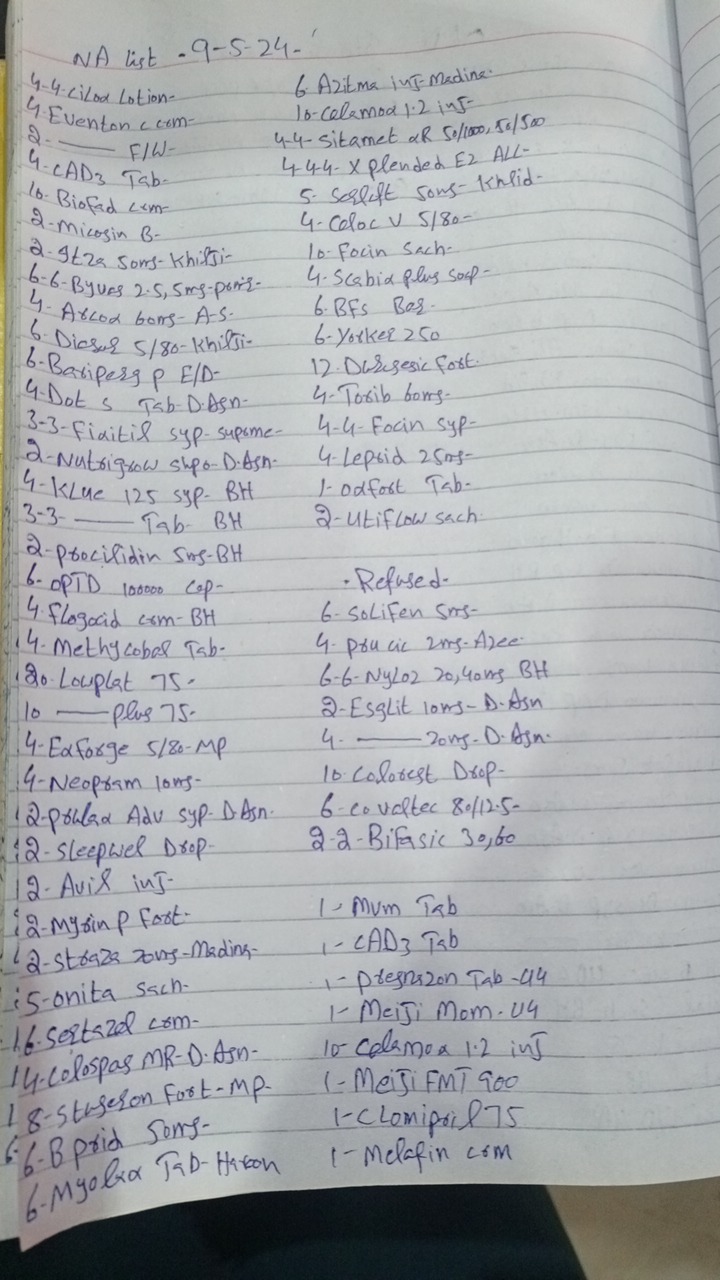 NA list - 9-5-24-
4-4-Cilox Lotion-
4-Eventon c crm-
2- —— F/W-
4-CAD3 Tab-
10-Biofad crm-
2-Micosin B-
2-gtza 50mg-Khilji-
6-6-Byvas 2.5, 5mg-
4-Arcox 60mg-A-S-
6-Diosar 5/80-Khilji-
6-Baripesg P E/D-
4-Dot s Tab-D.Asn-
3-3- syp-supsme-
2-Nutrigrow D.Asn-
4-Klac 125 syp-BH
3-3- —— Tab- BH
2-procilidin 5mg-BH
6-OPTD 100000 Cap-
4-flogocid crm-BH
4-Methycobal Tab-
20-Lowplat 75-
10 —— plus 75-
4-Exforge 5/80-MP
4-Neopram 10mg-
2-prulax Adv syp-D.Asn-
2-Sleepwel Drop-
2-Avil inj-
2-Myrin P fort-
2-Straza 20mg-Madina-
5-onita Sach-
6-Sertazol crm-
4-Colospas MR-D.Asn-
8-Stugeron Fort-MP-
6-B prid 50mg-
6-Myolax Tab-Haron
6-Azitma inj-Madina-
10-Calamox 1.2 inj-
4-4-Sitamet xR 50/1000, 50/500
4-4-4-Xplended EZ ALL-
5-Serlift 50mg-Khlid-
4-Caloc V 5/80-
10-Focin Sach-
4-Scabix plus soap-
6-BFS Bag-
6-Yorker 250
12-Durgesic fort-
4-Torib 60mg-
4-4-Focin syp-
4-Leprid 25mg-
1-Oxfort Tab-
2-Utiflow sach
-Refused-
6-Solifen 5mg-
4-prucic 2mg-Azee-
6-6-Nyloz 20,40mg BH
2-Esglit 10mg-D.Asn
4- —— 20mg-D.Asn-
10-Colorest Drop-
6-covaltec 80/12.5-
2-2-Bifasic 30,60
1-Mvm Tab
1-CAD3 Tab
1-pregnazon Tab-U4
1-Meiji Mom-U4
10-Calamox 1.2 inj
1-Meiji FMT 900
1-Clomipril 75
1-Melafin crm